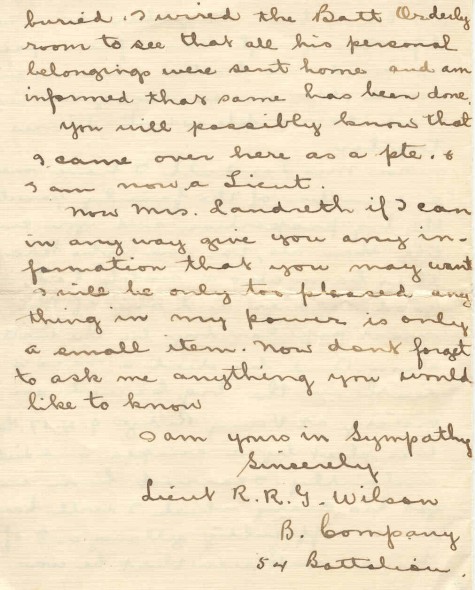 buried. I wired the Batt Orderly
room to see that all his personal
belongings were sent home and am
informed that same has been done
you will possibly know that
I came over here as a pte. &
I am now a Lieut.
Now Mrs. Landreth if I can
in any way give you any in-
formation that you may want
I will be only too pleased any
thing in my power is only
a small item. Now dont forget
to ask me anything you would
like to know
I am yours in Sympathy
Sincerely
Lieut R. R. G. Wilson
B. Company
54 Battalion.